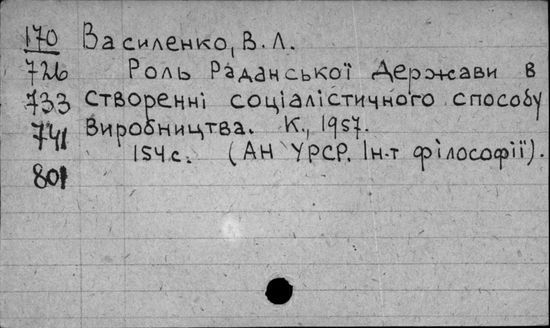 170 Василенко, В. Л.
726 Роль Раданської Держави в
733 створенні соціалістичного способу
741 виробництва. К., 1957.
154 с. (АН УРСР. Ін-т філософії).
801